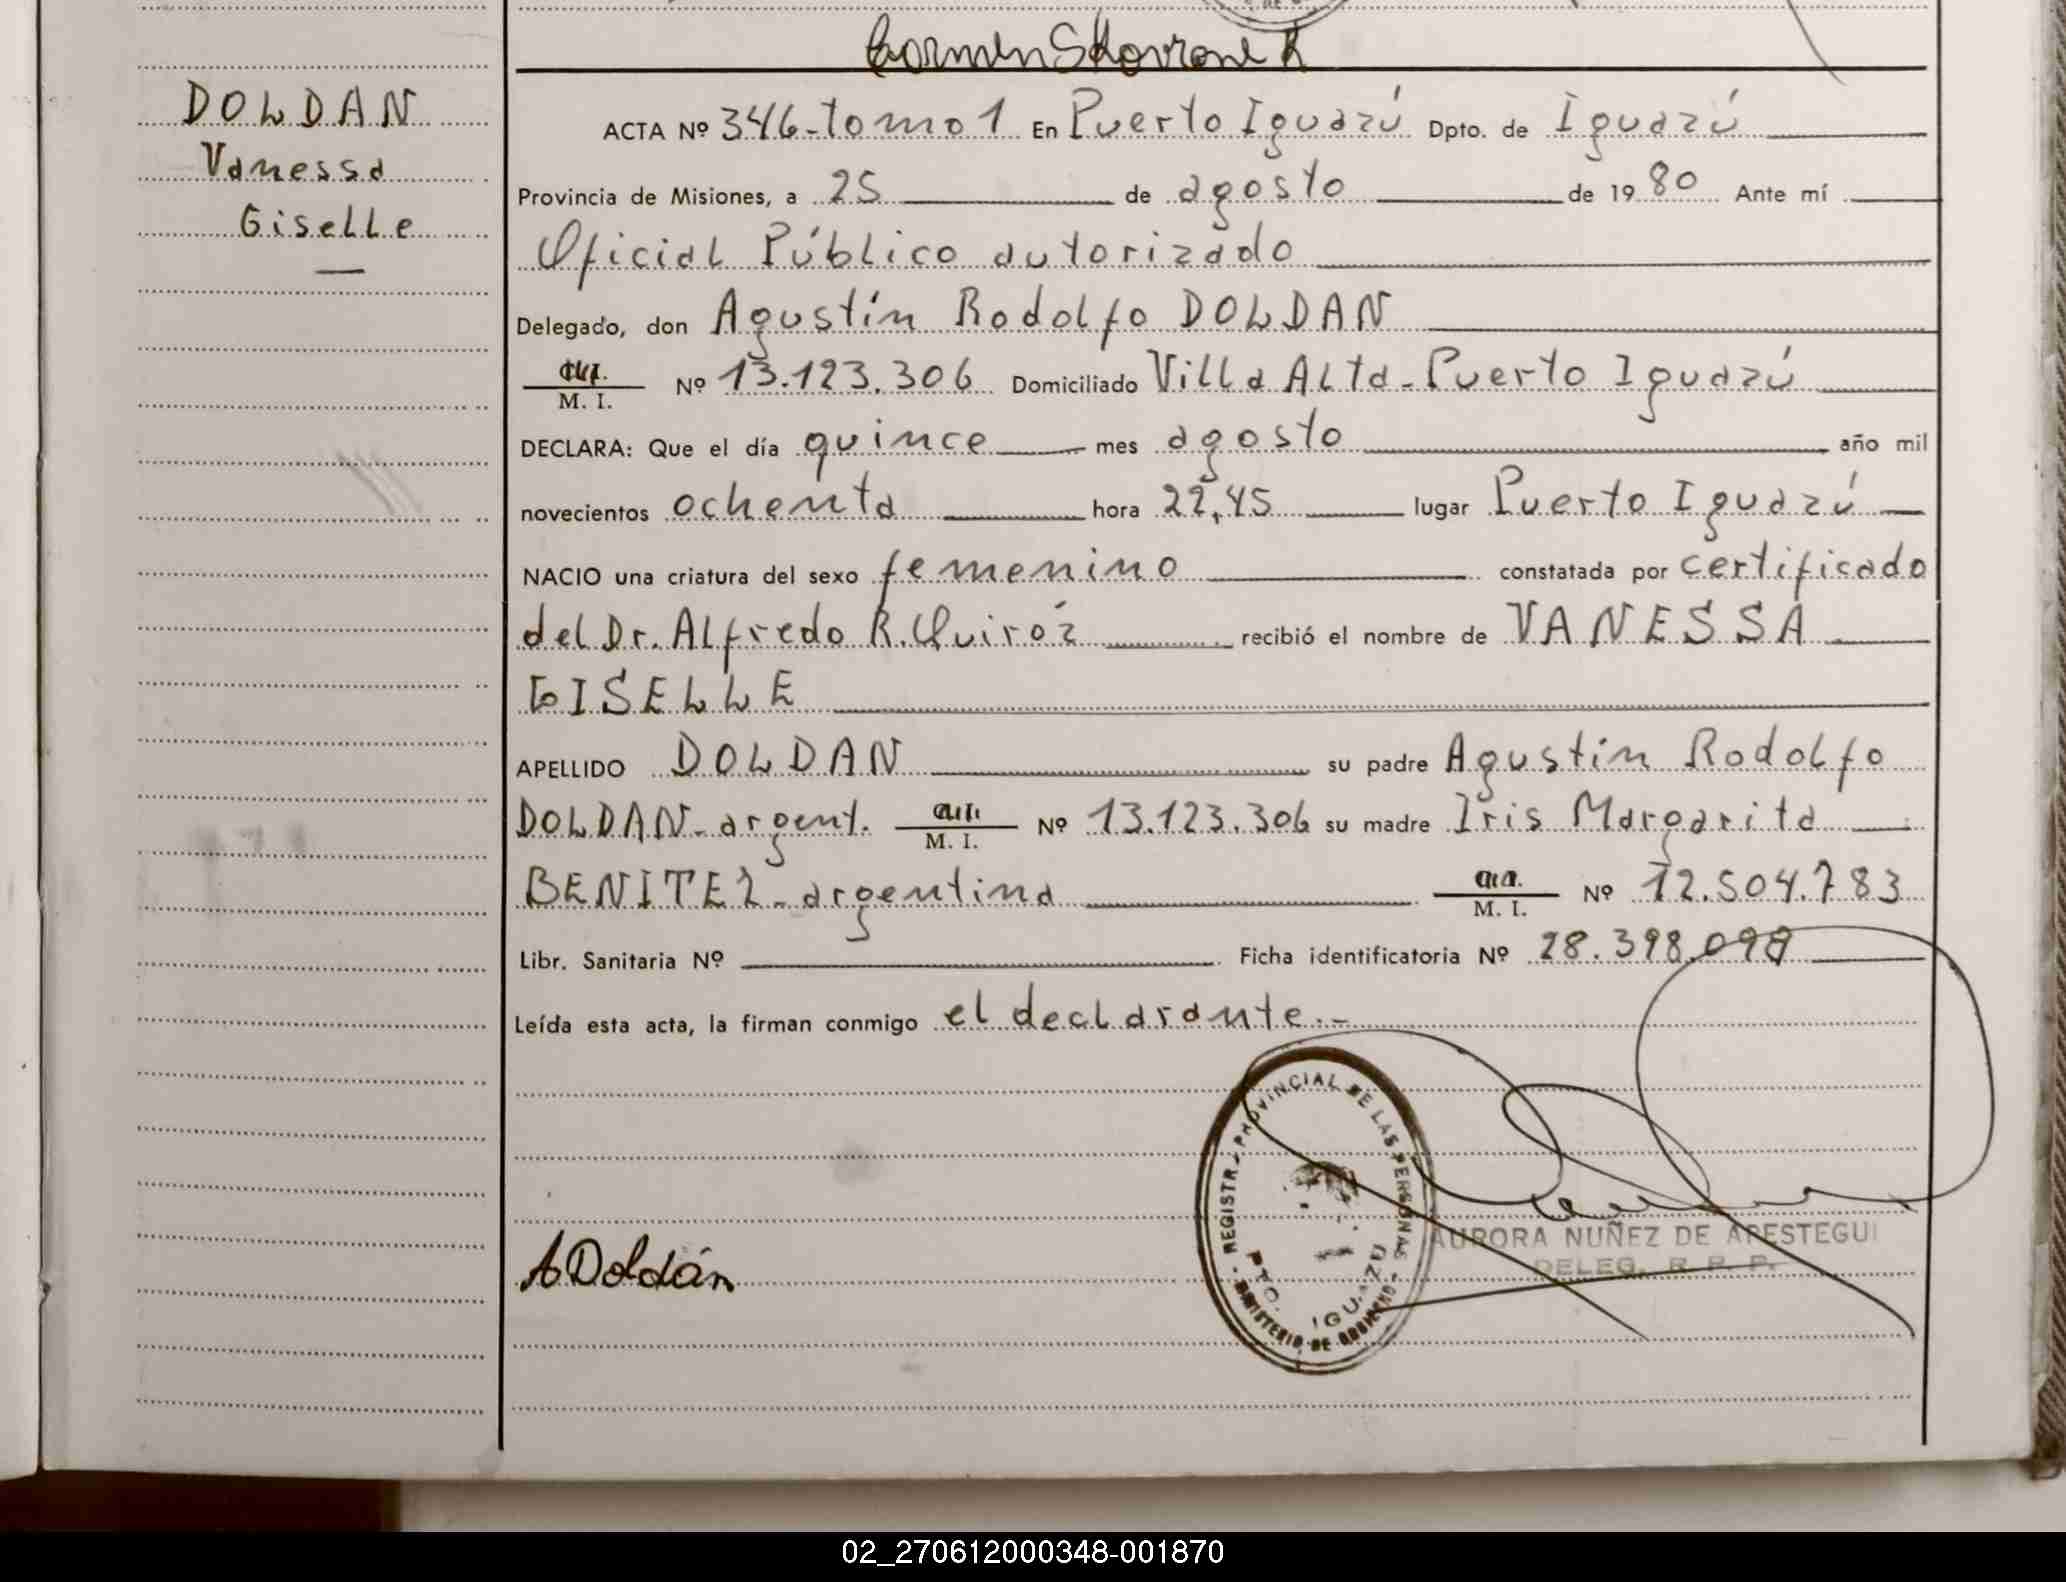 DOLDAN
Vanessa
Giselle
ACTA Nº 346-tomo 1 En Puerto Iguazú Dpto. de Iguazú
Provincia de Misiones, a 25 de agosto de 1980 Ante mí
Oficial Público autorizado
Delegado, don Agustín Rodolfo DOLDAN
M. I. Nº 13.123.306 Domiciliado Villa Alta-Puerto Iguazú
DECLARA: Que el día quince mes agosto año mil
novecientos ochenta hora 22,45 lugar Puerto Iguazú
NACIO una criatura del sexo femenino constatada por certificado
del Dr. Alfredo R. Quiróz recibió el nombre de VANESSA
GISELLE
APELLIDO DOLDAN su padre Agustín Rodolfo
DOLDAN-argent. M. I. Nº 13.123.306 su madre Iris Margarita
BENITEZ-argentina M. I. Nº 12.504.783
Libr. Sanitaria Nº Ficha identificatoria Nº 28.398.098
Leída esta acta, la firman conmigo el declarante.-
REGISTRO PROVINCIAL DE LAS PERSONAS
PTO. IGUAZU
MINISTERIO DE GOBIERNO
AURORA NUÑEZ DE APESTEGUI
DELEG. R. P. P.
A Doldán
02_270612000348-001870